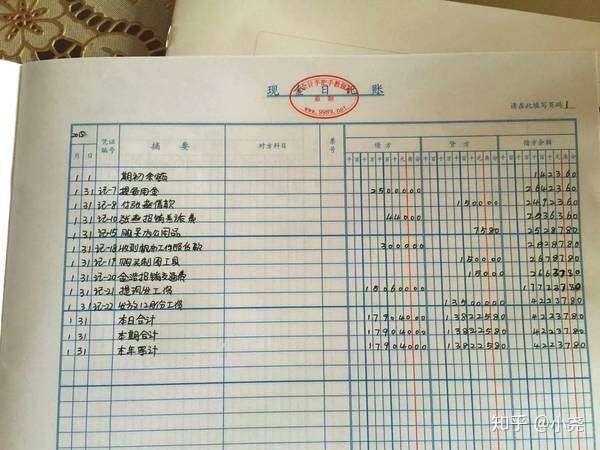 现金日记账
www.9989.net
请在此填写页码 1
2015
月 日 凭证编号 摘要 对方科目 票号 借方 贷方 借方余额
千百十万千百十元角分 千百十万千百十元角分 千百十万千百十元角分
1 1 期初余额 142360
1 31 记-7 提备用金 2500000 2642360
1 31 记-8 付张燕借款 150000 2492360
1 31 记-10 张燕报销差旅费 44000 2536360
1 31 记-15 购买办公用品 7580 2528780
1 31 记-18 收到 工作服款 300000 2828780
1 31 记-19 购买制图工具 150000 2678780
1 31 记-20 报销交通费 15000 2663780
1 31 记-21 提现发工资 15060000 17723780
1 31 记-22 发放12月份工资 13500000 4223780
1 31 本日合计 17904000 13822580 4223780
1 31 本期合计 17904000 13822580 4223780
1 31 本年累计 17904000 13822580 4223780
知乎 @小尧